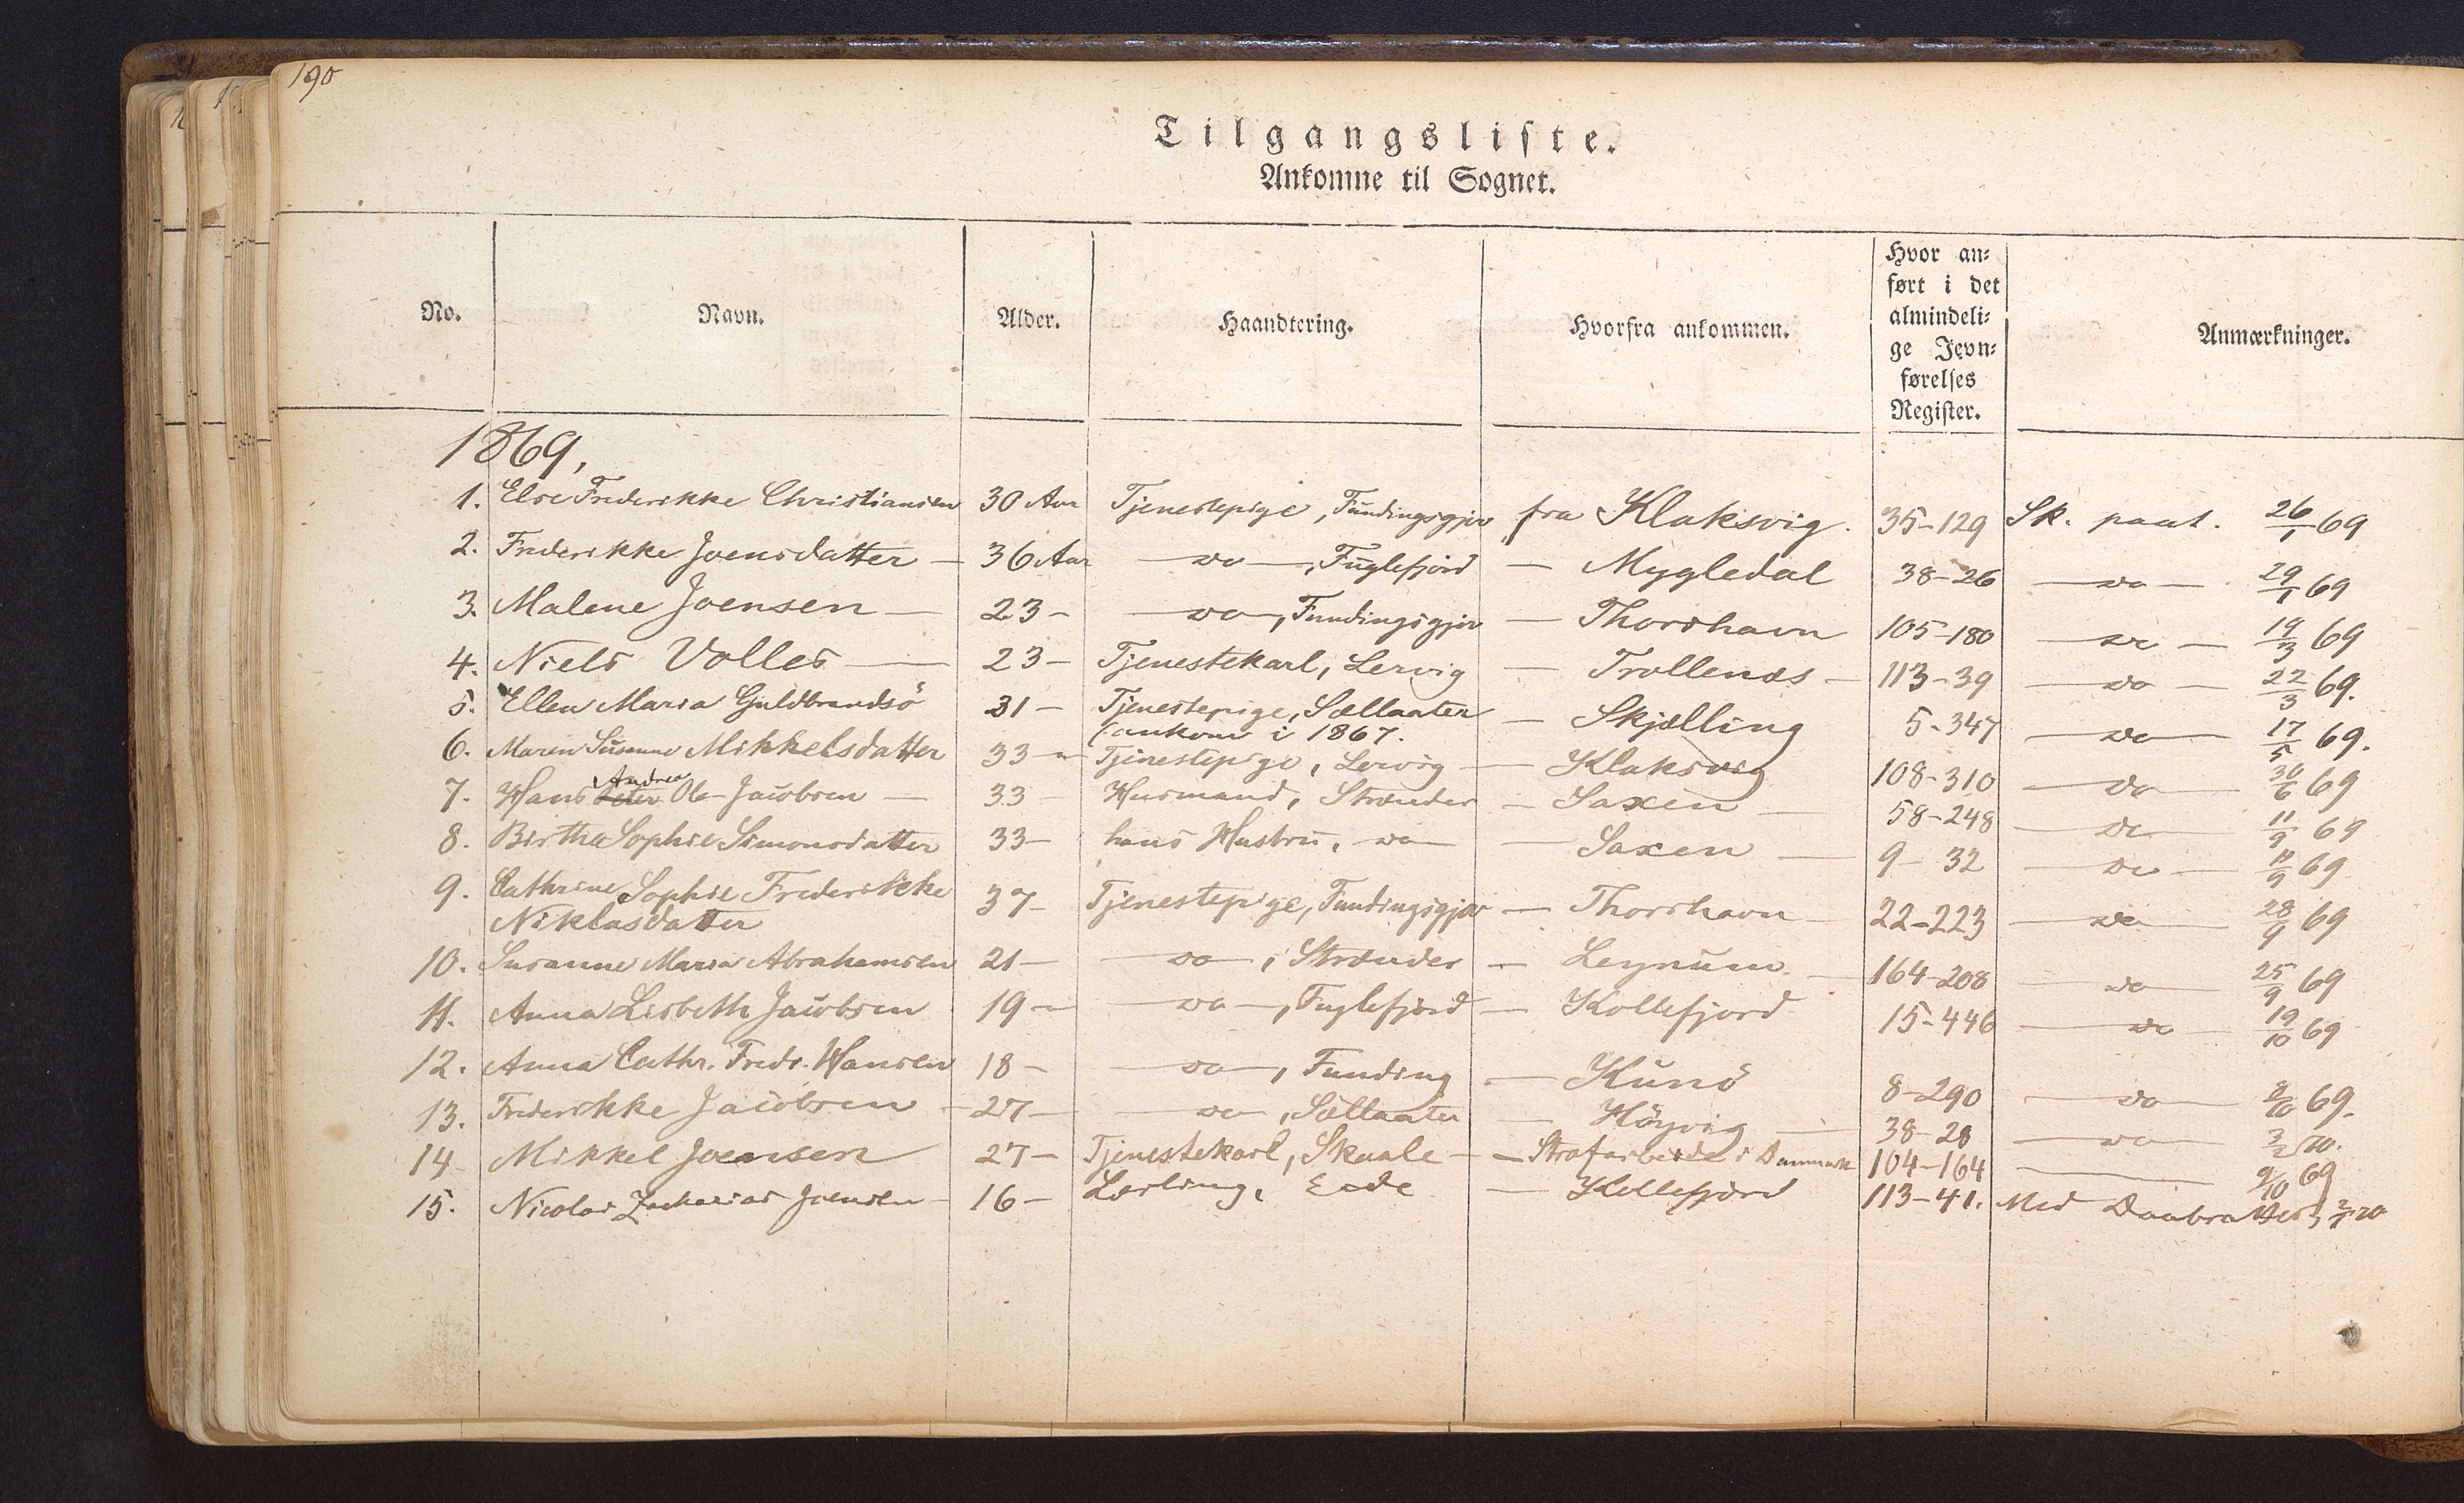 190
Tilgangsliste.
Ankomne til Sognet.
No. Navn. Alder. Haandtering. Hvorfra ankommen. Hvor anført i det almindelige Jevnførelses Register. Anmærkninger.
1869,
1. Else Frederikke Christiansen 30 Aar Tjenestepige, Fundingsgjov fra Klaksvig. 35-129 Sk. paat. 26/1 69
2. Frederikke Joensdatter — 36 Aar — do —, Fuglefjord — Mygledal 38-26 — do — 29/1 69
3. Malene Joensen — 23 — — do —, Fundingsgjov — Thorshavn 105-180 — do — 19/3 69
4. Niels Volles — 23 — Tjenestekarl, Lervig — Trollenæs — 113-39 — do — 22/3 69.
5. Ellen Maria Guldbrandsö 31 — Tjenestepige, Sellaater — Skjælling 5-347 — do — 17/5 69.
(ankom i 1867.
6. Maren Susanne Mikkelsdatter 33 — Tjenestepige, Lervig — Klaksvig 108-310 — do — 30/6 69
Andrea
7. Hans Peter Ole Jacobsen — 33 — Husmand, Strænder — Saxen — 58-248 — do — 11/9 69
8. Birthe Sophie Simonsdatter 33 — hans Hustru, do — Saxen — 9-32 — do — 11/9 69
9. Cathrine Sophie Frederikke
Niklasdatter 37 — Tjenestepige, Fundingsgjov — Thorshavn — 22-223 — do — 28/9 69
10. Susanne Maria Abrahamsen 21 — — do —, Strænder — Leynum — 164-208 — do — 25/9 69
11. Anna Lisbeth Jacobsen 19 — — do —, Fuglefjord — Kollefjord 15-446 — do — 19/10 69
12. Anna Cathr. Fredr. Hansen 18 — — do —, Funding — Kunö 8-290 — do — 8/10 69.
13. Frederikke Jacobsen — 27 — — do —, Sellaater — Höyvig — 38-28 — do — 3/2 70.
14. Mikkel Joensen 27 — Tjenestekarl, Skaale — Strafarbeide i Danmark 104-164 — 9/10 69
15. Nicolai Zacharias Joensen — 16 — Lærling, Eide — Kollefjord 113-41. Med Daabsattest 2/1 70